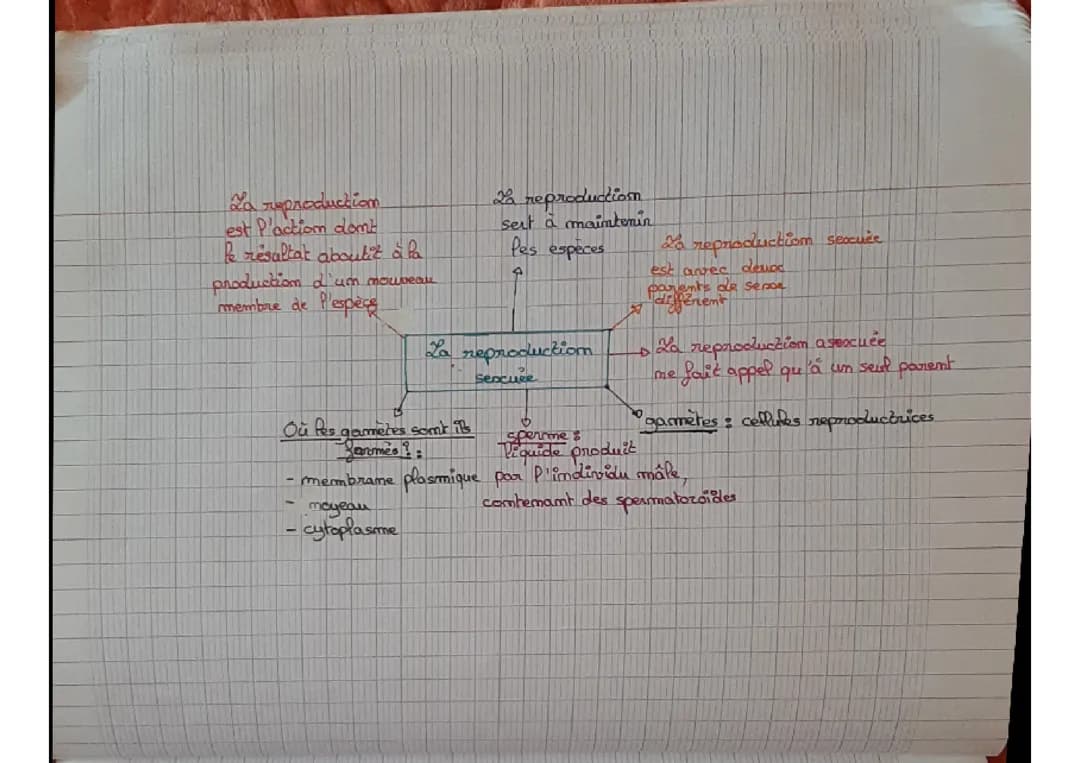 La reproduction
est l'action dont
le résultat aboutit à la
production d'un nouveau
membre de l'espèce
La reproduction
sert à maintenir
les espèces
La reproduction sexuée
est avec deux
parents de sexe
différent
La reproduction
sexuée
La reproduction asexuée
ne fait appel qu'à un seul parent
gamètes : cellules reproductrices
sperme :
liquide produit
par l'individu mâle,
contenant des spermatozoïdes
Où les gamètes sont ils
formés ? :
- membrane plasmique
- noyeau
- cytoplasme